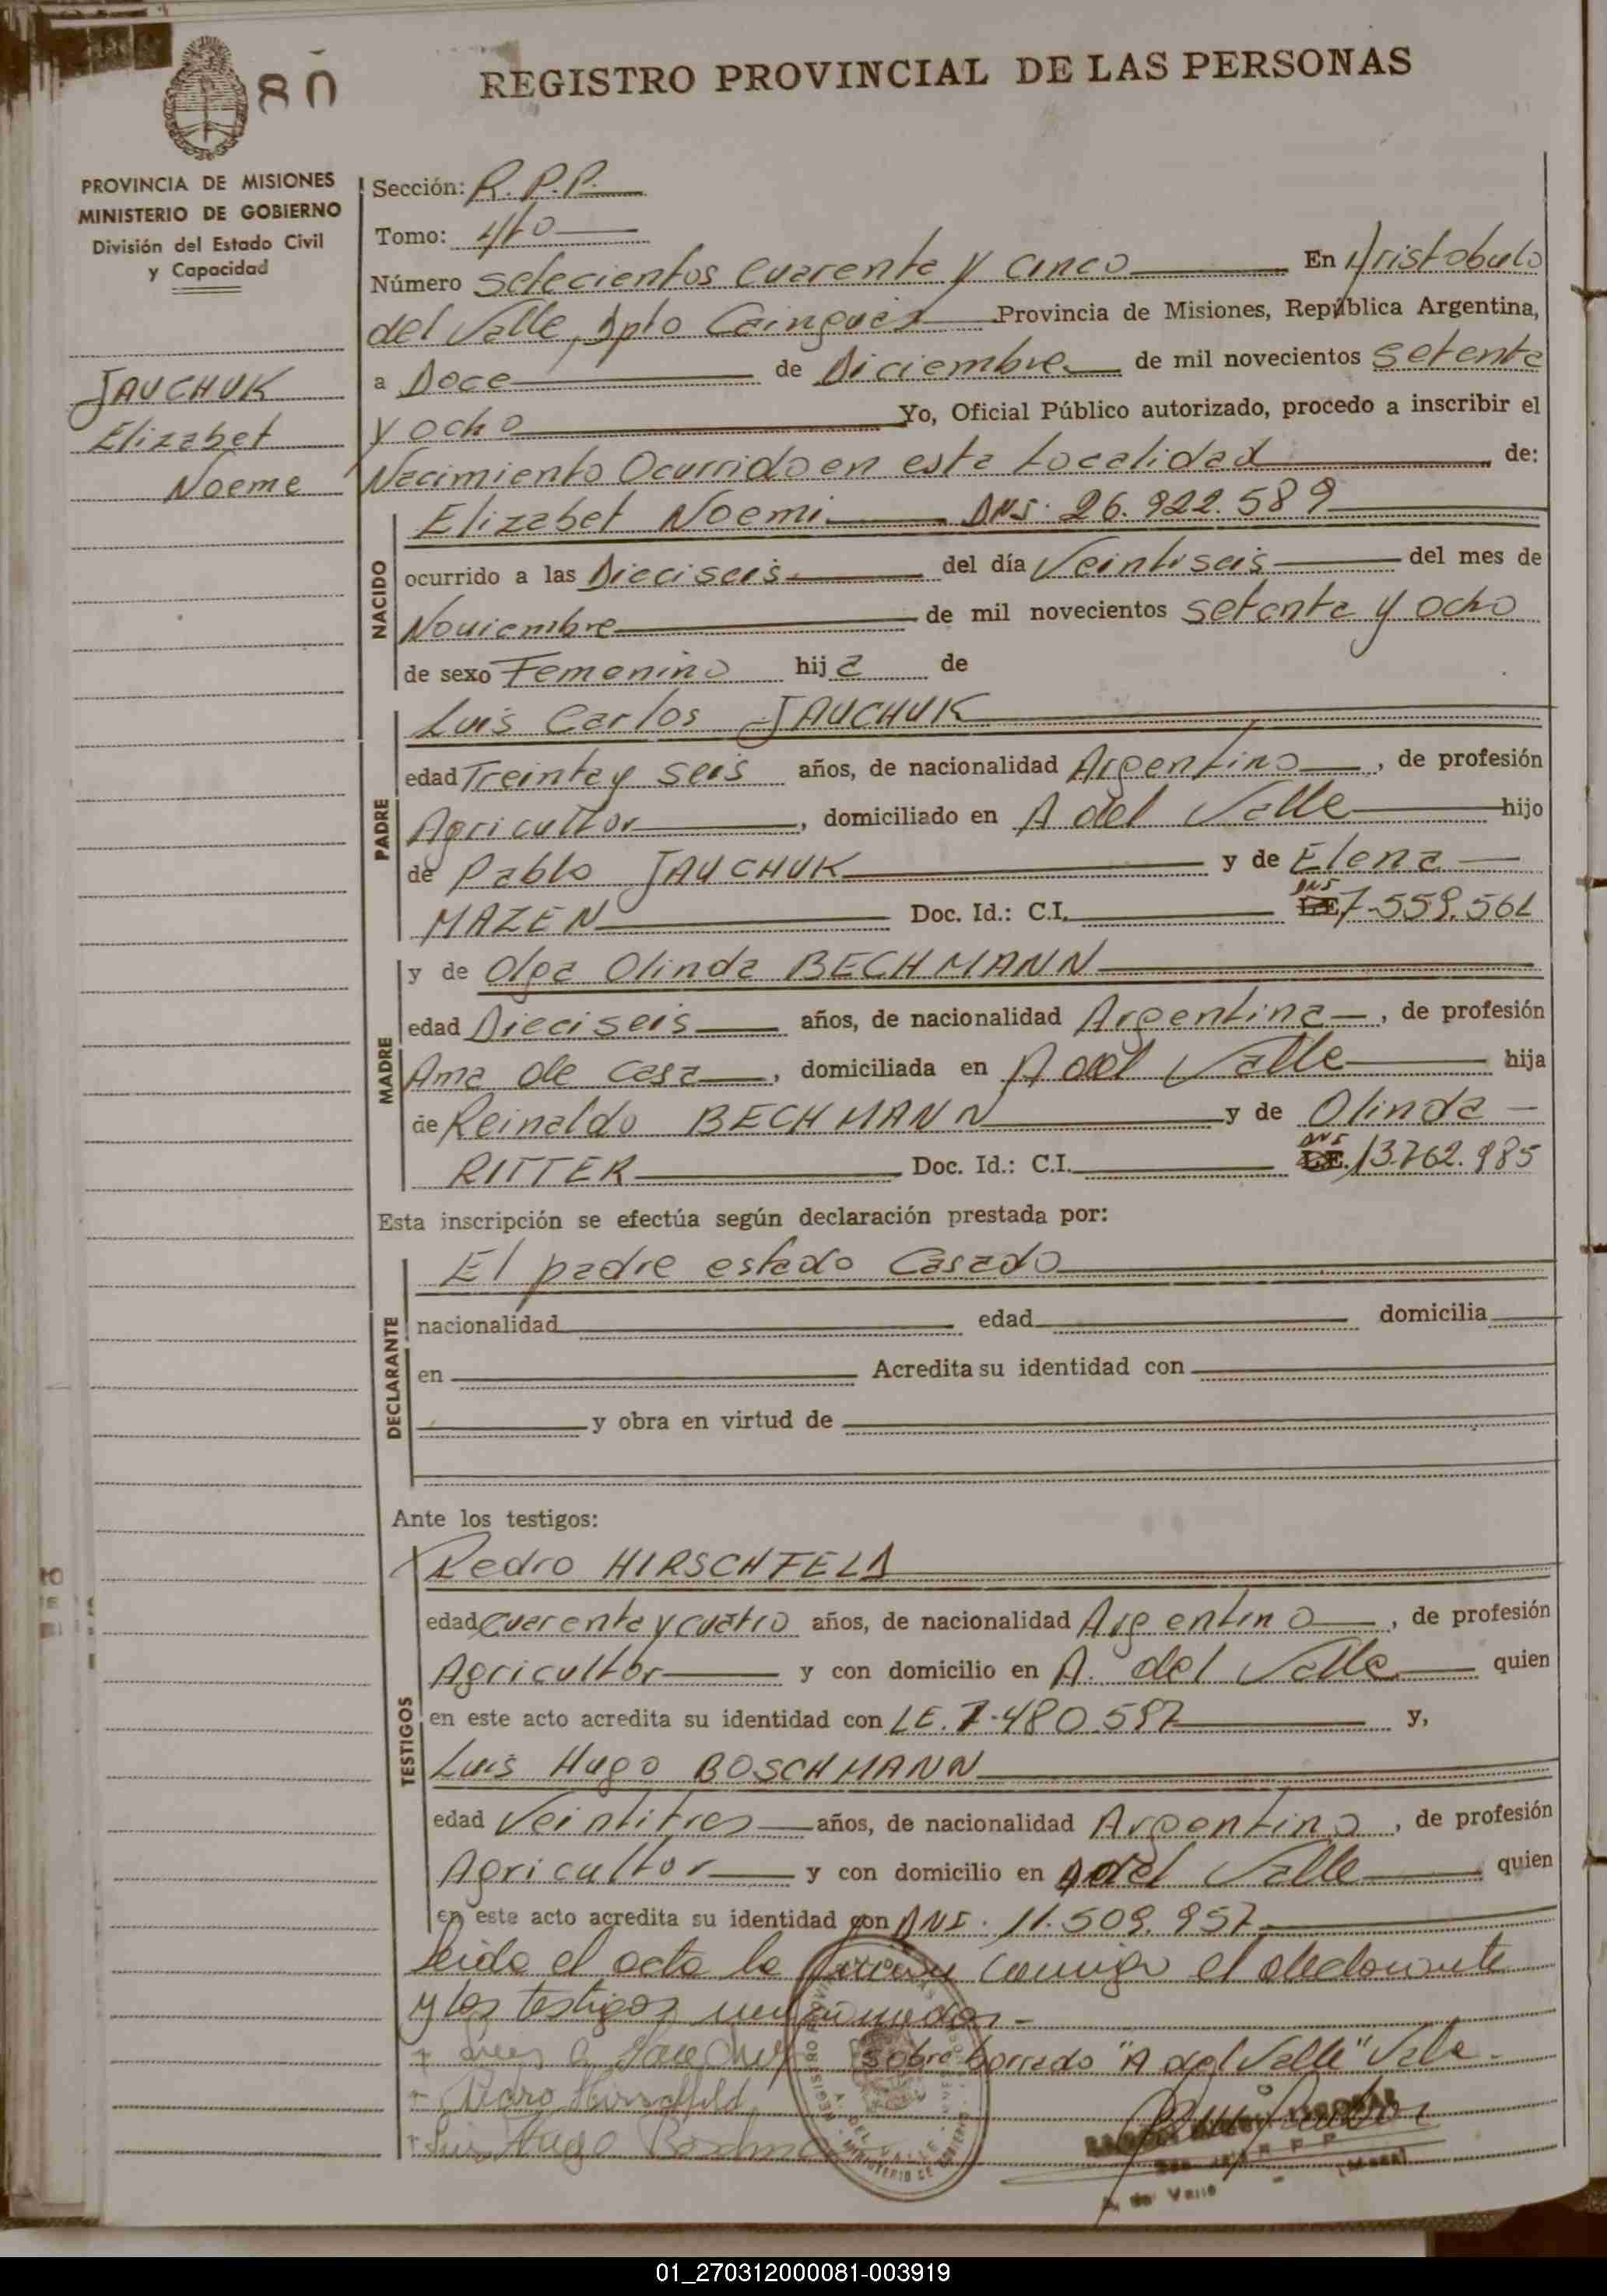 80
REGISTRO PROVINCIAL DE LAS PERSONAS
PROVINCIA DE MISIONES
MINISTERIO DE GOBIERNO
División del Estado Civil
y Capacidad
JAUCHUK
Elizabet
Noeme
Sección: R.P.P.
Tomo: 4to
Número setecientos cuarenta y cinco En Aristobulo
del Valle, Dpto Cainguás Provincia de Misiones, República Argentina,
a Doce de Diciembre de mil novecientos setenta
y ocho Yo, Oficial Público autorizado, procedo a inscribir el
Nacimiento Ocurrido en esta Localidad de:
NACIDO
Elizabet Noemi DNI. 26.922.589
ocurrido a las Dieciseis del día Veintiseis del mes de
Noviembre de mil novecientos setenta y ocho
de sexo Femenino hija de
PADRE
Luis Carlos JAUCHUK
edad Treinta y seis años, de nacionalidad Argentino, de profesión
Agricultor, domiciliado en A del Valle hijo
de Pablo JAUCHUK y de Elena
MAZEN Doc. Id.: C.I. DNI 7.559.561
MADRE
y de Olga Olinda BECHMANN
edad Dieciseis años, de nacionalidad Argentina, de profesión
Ama de casa, domiciliada en A del Valle hija
de Reinaldo BECHMANN y de Olinda
RITTER Doc. Id.: C.I. DNI 13.762.985
Esta inscripción se efectúa según declaración prestada por:
DECLARANTE
El padre estado Casado
nacionalidad edad domicilia
en Acredita su identidad con
y obra en virtud de
Ante los testigos:
TESTIGOS
Pedro HIRSCHFELD
edad cuarenta y cuatro años, de nacionalidad Argentino, de profesión
Agricultor y con domicilio en A. del Valle quien
en este acto acredita su identidad con LE. 7.480.597 y,
Luis Hugo BOSCHMANN
edad Veintitres años, de nacionalidad Argentino, de profesión
Agricultor y con domicilio en A del Valle quien
en este acto acredita su identidad con DNI. 11.509.957
Leida el acta la firman conmigo el declarante
y los testigos mencionados.-
sobre borrado "A del Valle" Vale.-
Pedro Hirschfeld
Luis Hugo
A. del Valle
01_270312000081-003919